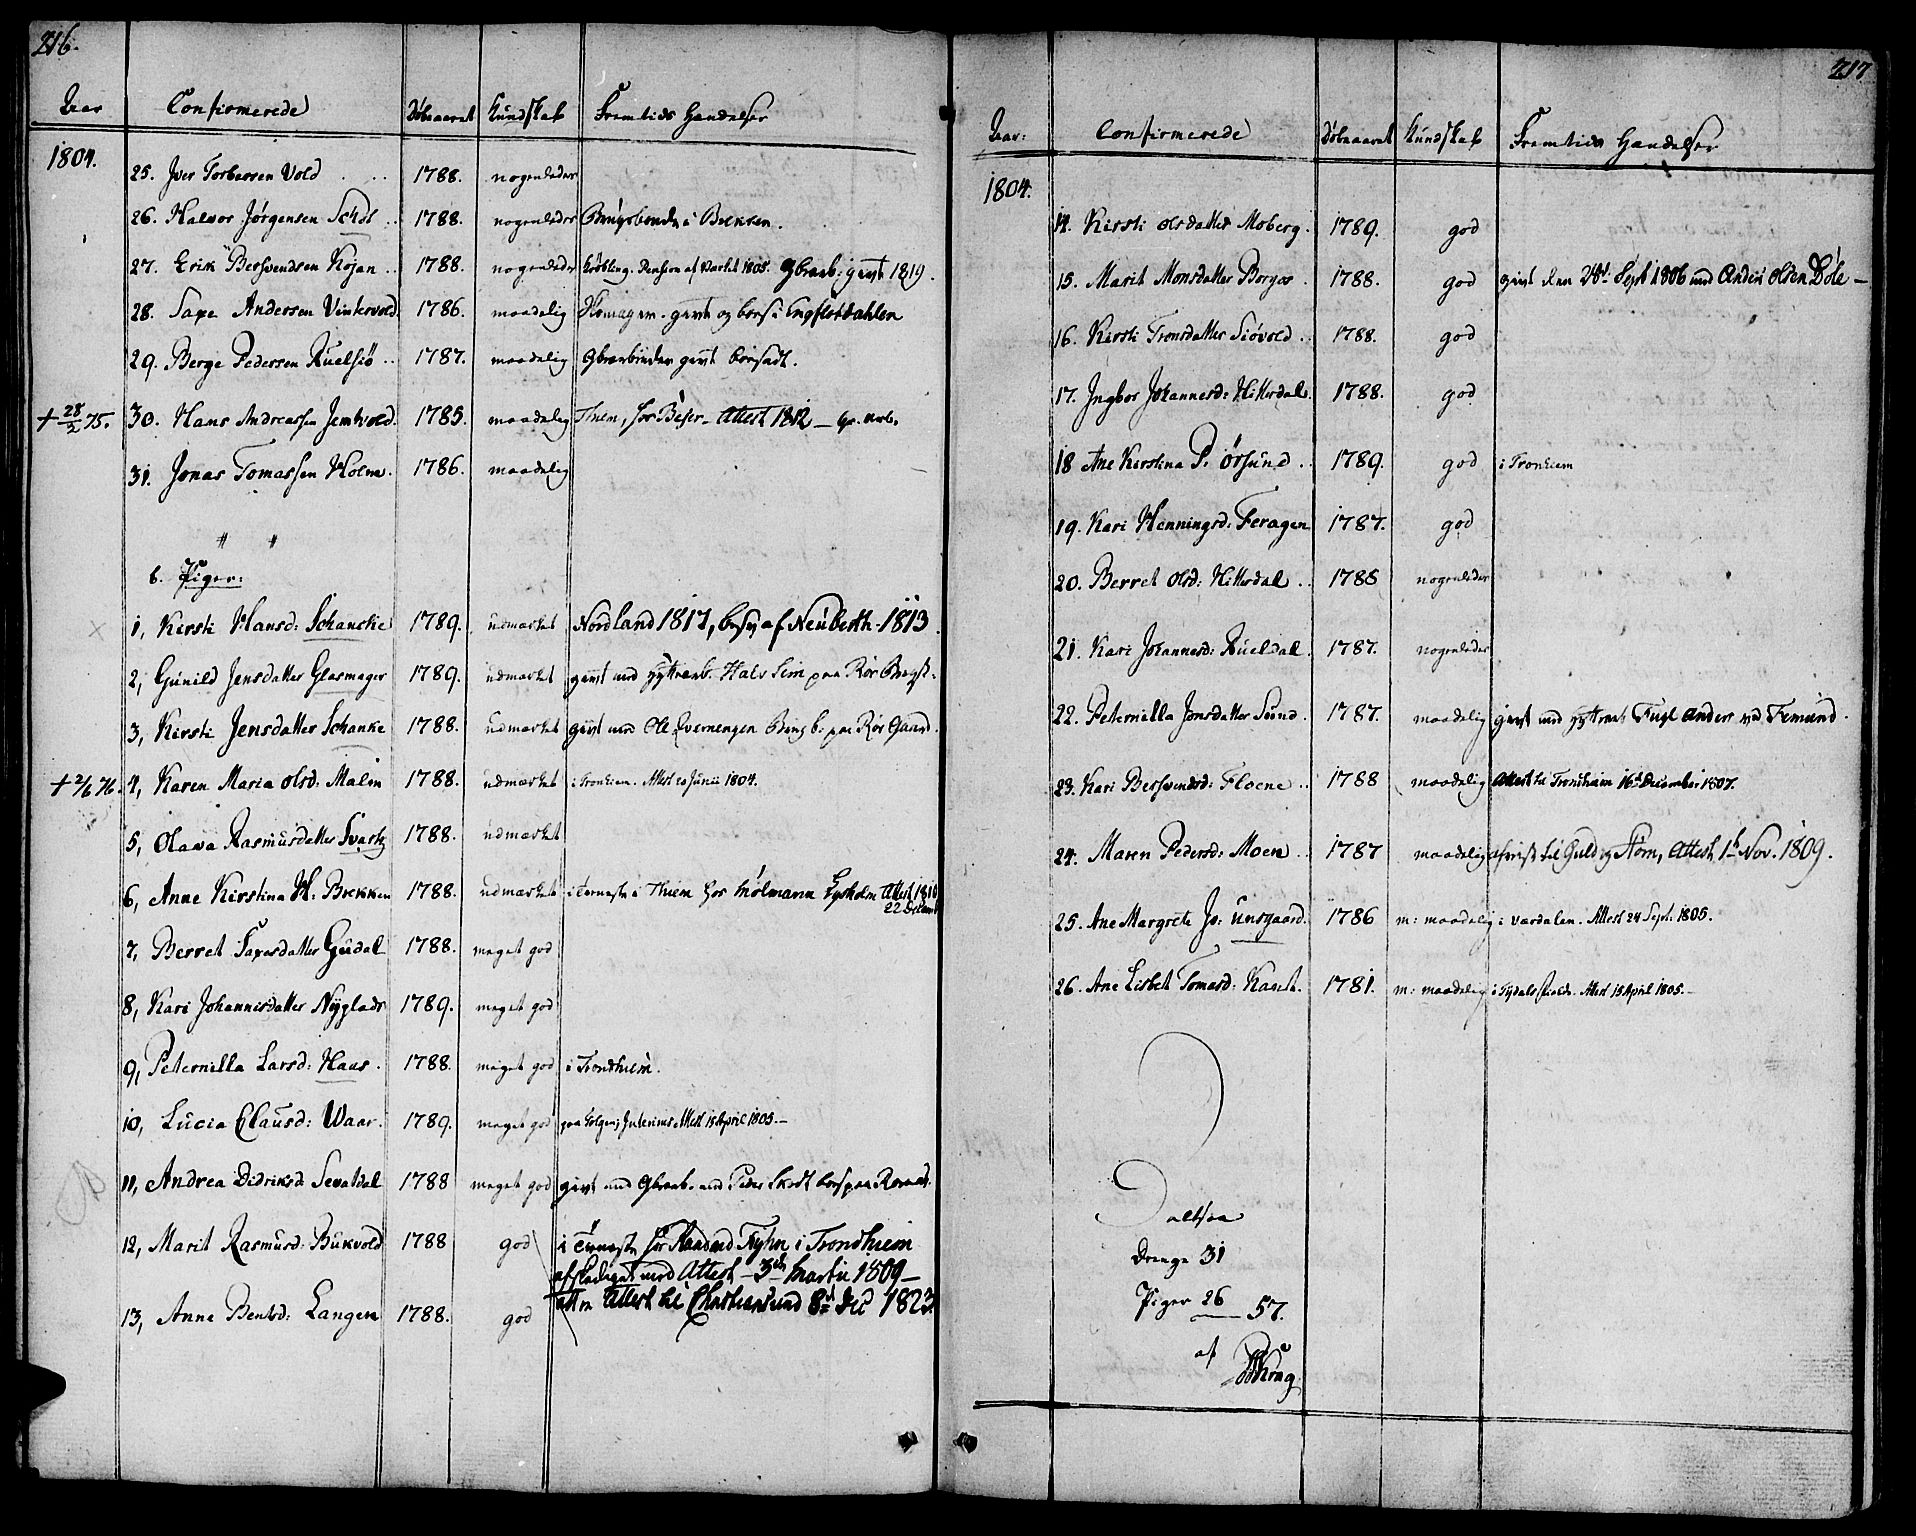 216.
Aar Confirmerede Døbeaaret Kundskab Fremtids Handelser
1804.
25. Iver Torbersen Vold 1788. nogenleder
26. Halvor Jørgensen Schdt 1788. nogenleder i Brekken.
27. Erik Bersvendsen Kojan 1788. nogenleder 1805. givt 1819.
28. Saxe Andersen Vintervold 1786. maadelig givt og bors i Engflotdahlen
29. Berge Pedersen Ruelsiø 1787. maadelig givt bosadt.
+ 28/2 75. 30. Hans Andreassen Jemtvold. 1785. maadelig Attest 1812
31. Jonas Tomassen Holm. 1786. maadelig
" "
b. Piger:
1, Kirsti Hansd: Schancke 1789. udmærket Nordland 1817, af Neuberth 1813
2, Gunild Jensdatter Glasmager 1789. udmærket givt med Halv Siem paa Rør
3, Kirsti Jensdatter Schanke 1788. udmærket givt med Ole Qvernengen paa Rør Gaard.
+ 2/6 76. 4, Karen Maria Olsd: Malin 1788. udmærket i Tronhiem. Attest 20 Junii 1804.
5, Olava Rasmusdatter Svartz 1788. udmærket
6, Anne Kirstina H: Brekken 1788. udmærket i Tieneste i Thiem hos Lysholm Attest 1810
22 Decemb
7, Berret Saxesdatter Gudal 1788. meget god
8, Kari Johannisdatter Nyplads 1789. meget god
9, Peternilla Larsd: Haas. 1788. meget god i Trondhiem.
10, Lucia Clausd: Waar. 1789. meget god Attest 15 April 1805.
11, Andrea Didriksd Sevatdal 1788 meget god givt med Peder
12, Marit Rasmusd: Bukvold 1788 god i Tieneste hos i Trondhiem
afskediget med Attest 3die Martii 1809
13, Anne Bentsd: Langen 1788. god Attest til Christiansund 8d Dec 1823
217
Aar: Confirmerede Døbeaaret Kundskab Fremtids Handelser
1804.
14. Kirsti Olsdatter Moberg. 1789. god
15. Marit Monsdatter Borgos. 1788. god givt den 28d Sept 1806 med Anders Olsen Döle
16. Kirsti Tronsdatter Siøvold. 1788. god
17. Ingbor Johannesd: Hitterdal. 1788. god
18 Ane Kirstina P. Ørsund 1789. god i Tronhiem
19. Kari Henningsd: Feragen 1787. god
20. Berret Olsd: Hitterdal 1788 nogenleder
21. Kari Johannesd: Rueldal. 1787. nogenleder
22. Peternilla Jonsdatter Sund. 1787. maadelig givt med Anders ved Femund.
23. Kari Bersvendsd: Floene 1788 maadelig Attest til Trondhiem 16d December 1807.
24. Maren Pedersd: Moen 1787 maadelig til Attest 1st Nov. 1809.
25. Ane Margrete Jo: Unsgaard. 1786 m: maadelig i Værdalen. Attest 24 Sept. 1805.
26. Ane Lisbet Tomasd: Kant. 1781. m: maadelig i Attest 15 April 1805.
Jaltsaa
Drenge 31
Piger 26
57.
af
Krag